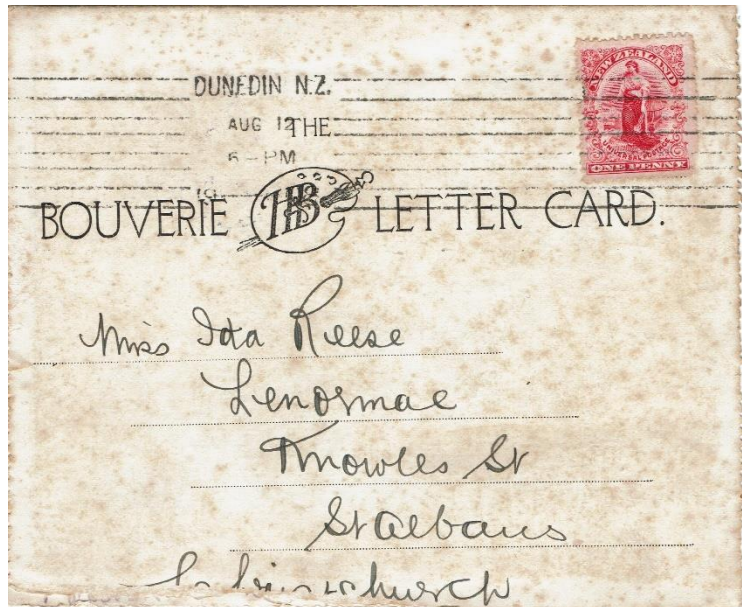 DUNEDIN N.Z.
AUG 12 THE
5-PM
19
NEW ZEALAND
UNIVERSAL POSTAGE
ONE PENNY
BOUVERIE HB LETTER CARD.
Miss Ida Reese
Lenormae
Knowles St
St Albans
Christchurch